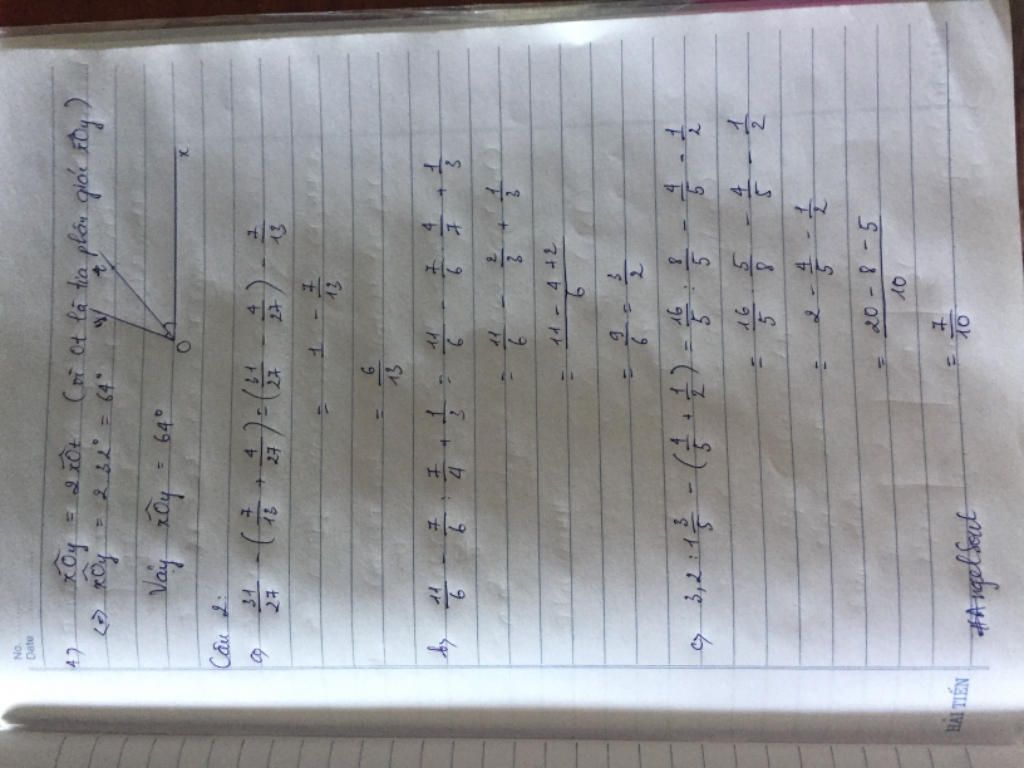 No.
Date
1) xÔy = 2 xÔt (vì Ot là tia phân giác xÔy)
(=) xÔy = 2.32° = 64°
Vậy xÔy = 64°
y t
O x
Câu 2:
a) 31/27 - (7/13 + 4/27) = (31/27 - 4/27) - 7/13
= 1 - 7/13
= 6/13
b) 11/6 - 7/6 : 7/4 + 1/3 = 11/6 - 7/6 . 4/7 + 1/3
= 11/6 - 2/3 + 1/3
= (11 - 4 + 2)/6
= 9/6 = 3/2
c) 3,2 : 1 3/5 - (4/5 + 1/2) = 16/5 : 8/5 - 4/5 - 1/2
= 16/5 . 5/8 - 4/5 - 1/2
= 2 - 4/5 - 1/2
= (20 - 8 - 5)/10
= 7/10
#AngelSoul
HẢI TIẾN